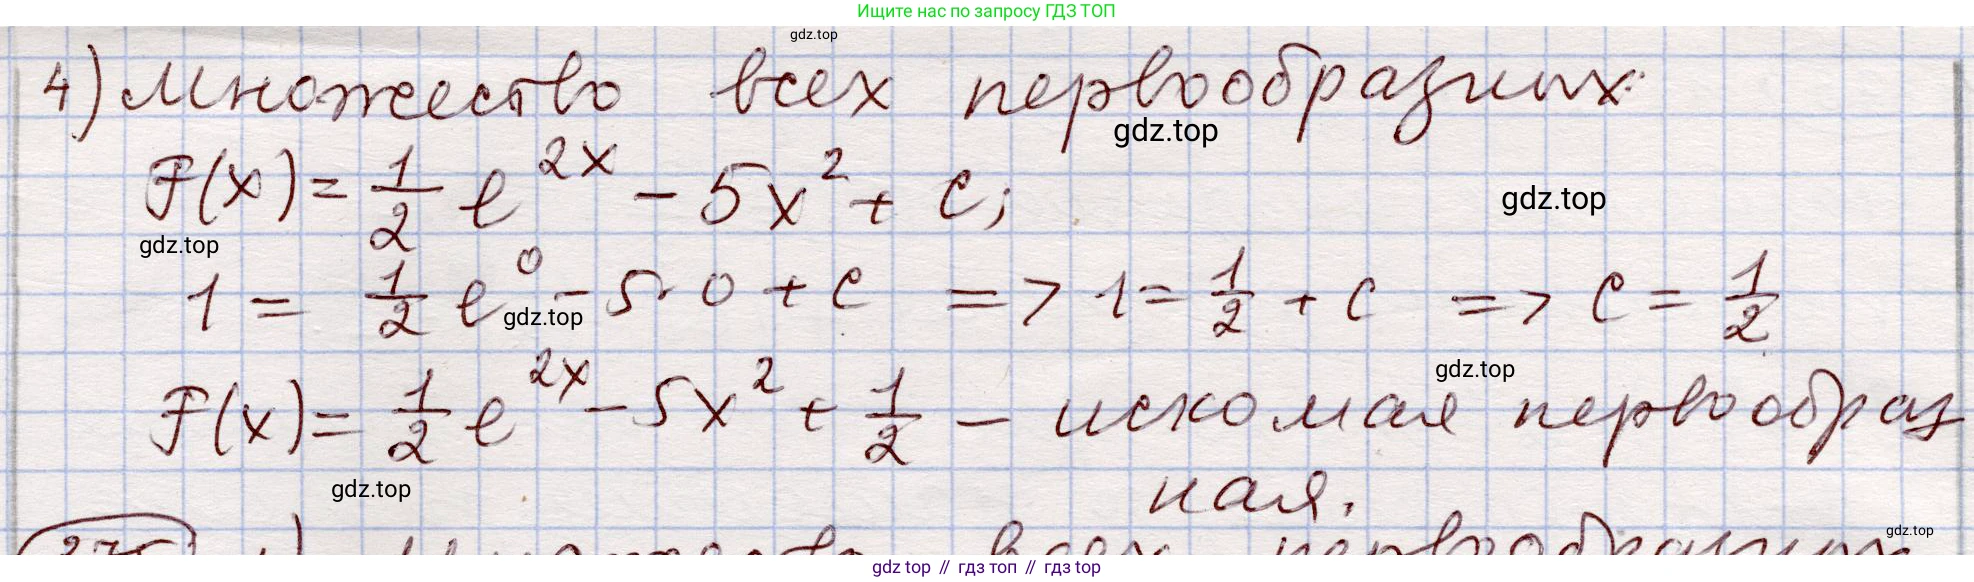 Ищите нас по запросу ГДЗ ТОП
gdz.top
4) Множество всех первообразных:
gdz.top
F(x) = 1/2 e^2x - 5x^2 + C;
gdz.top
gdz.top
1 = 1/2 e^0 - 5·0 + C => 1 = 1/2 + C => C = 1/2
gdz.top
gdz.top
F(x) = 1/2 e^2x - 5x^2 + 1/2 - искомая первообраз
ная.
gdz.top
gdz.top
1) Множество всех первообразных
gdz top // гдз топ // gdz top